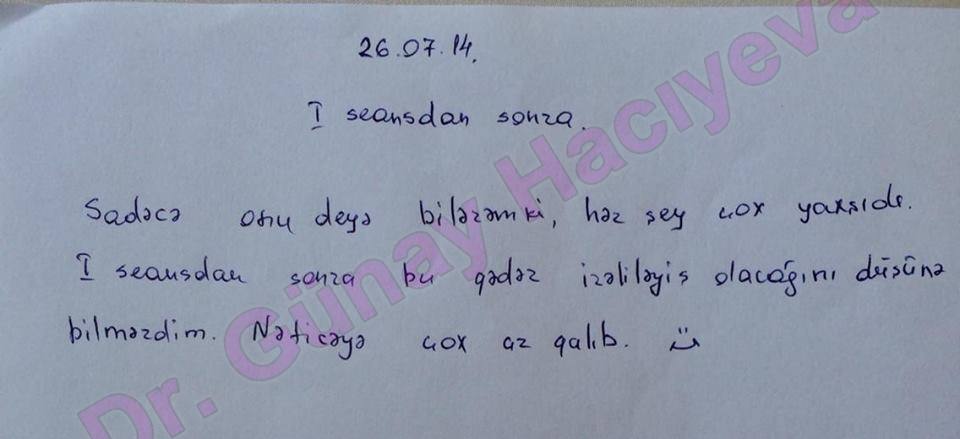 26.07.14.
I seansdan sonra.
Sadəcə onu deyə bilərəmki, hər şey çox yaxşıdı.
I seansdan sonra bu qədər irəliləyiş olacağını düşünə
bilməzdim. Nəticəyə çox az qalıb. ü
Dr. Günay Hacıyeva